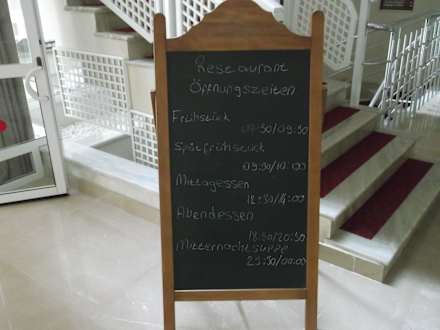 Restaurant
Öffnungszeiten
Frühstück
07:30/09:30
Spätfrühstück
09:30/10:00
Mittagessen
12:30/14:00
Abendessen
18:30/20:30
Mitternachtsuppe
23:30/00:00